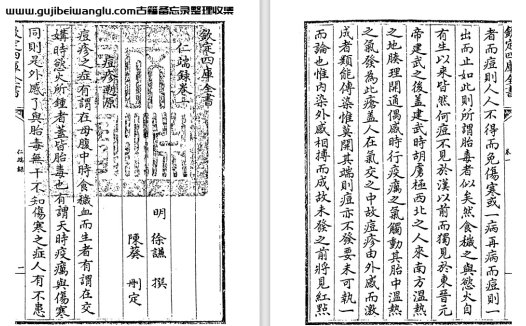 www.gujibeiwanglu.com古籍备忘录整理收集
欽定四庫全書
仁端錄卷
痘疹溯源
明 徐謙 撰
陳葵 刪定
痘疹之症有謂在母腹中時食穢血而生者有謂在交
媾時慾火所鍾者蓋皆胎毒也有謂天時疫癘與傷寒
同則是外感了與胎毒無干不知傷寒之症人有不患
欽定四庫全書
仁端錄
二
欽定四庫全書
卷
者而痘則人人不得而免傷寒或一病再病而痘則一
出而止如此則所謂胎毒者似矣然食穢之與慾火自
有生以來皆然何痘不見於漢以前而獨見於東晉元
帝建武之後蓋建武時胡虜極西北之人來南方溫熱
之地腠理開通偶感時行疫癘之氣觸動其胎中溫熱
之氣發為此瘡蓋人在氣交之中故痘疹由外感而激
成者類能傳染惟莫開其端則痘亦不發要未可執一
而論也惟內染外感相搏而成故未發之前將見紅點